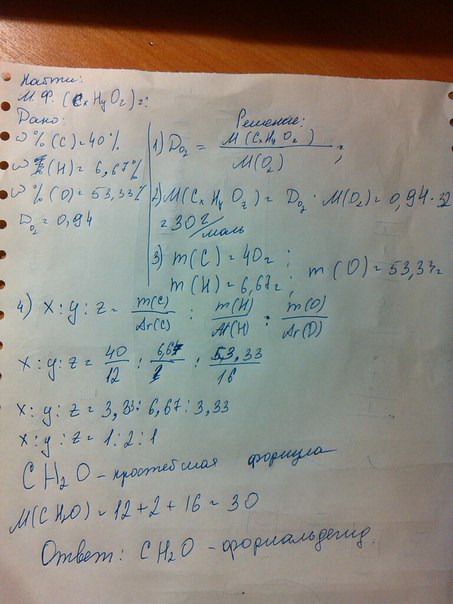 Найти:
М.Ф. (CxHyOz)=?
Дано:
ω%(C)=40%
ω%(H)=6,67%
ω%(O)=53,33%
D_O2=0,94
Решение:
1) D_O2 = M(CxHyOz) / M(O2) ;
2) M(CxHyOz) = D_O2 · M(O2) = 0,94 · 32
= 30 г/моль
3) m(C) = 40г ;
m(H) = 6,67г ; m(O) = 53,33г
4) x:y:z = m(C)/Ar(C) : m(H)/Ar(H) : m(O)/Ar(O)
x:y:z = 40/12 : 6,67/1 : 53,33/16
x:y:z = 3,33:6,67:3,33
x:y:z = 1:2:1
CH2O - простейшая формула
M(CH2O) = 12+2+16 = 30
Ответ: CH2O - формальдегид.